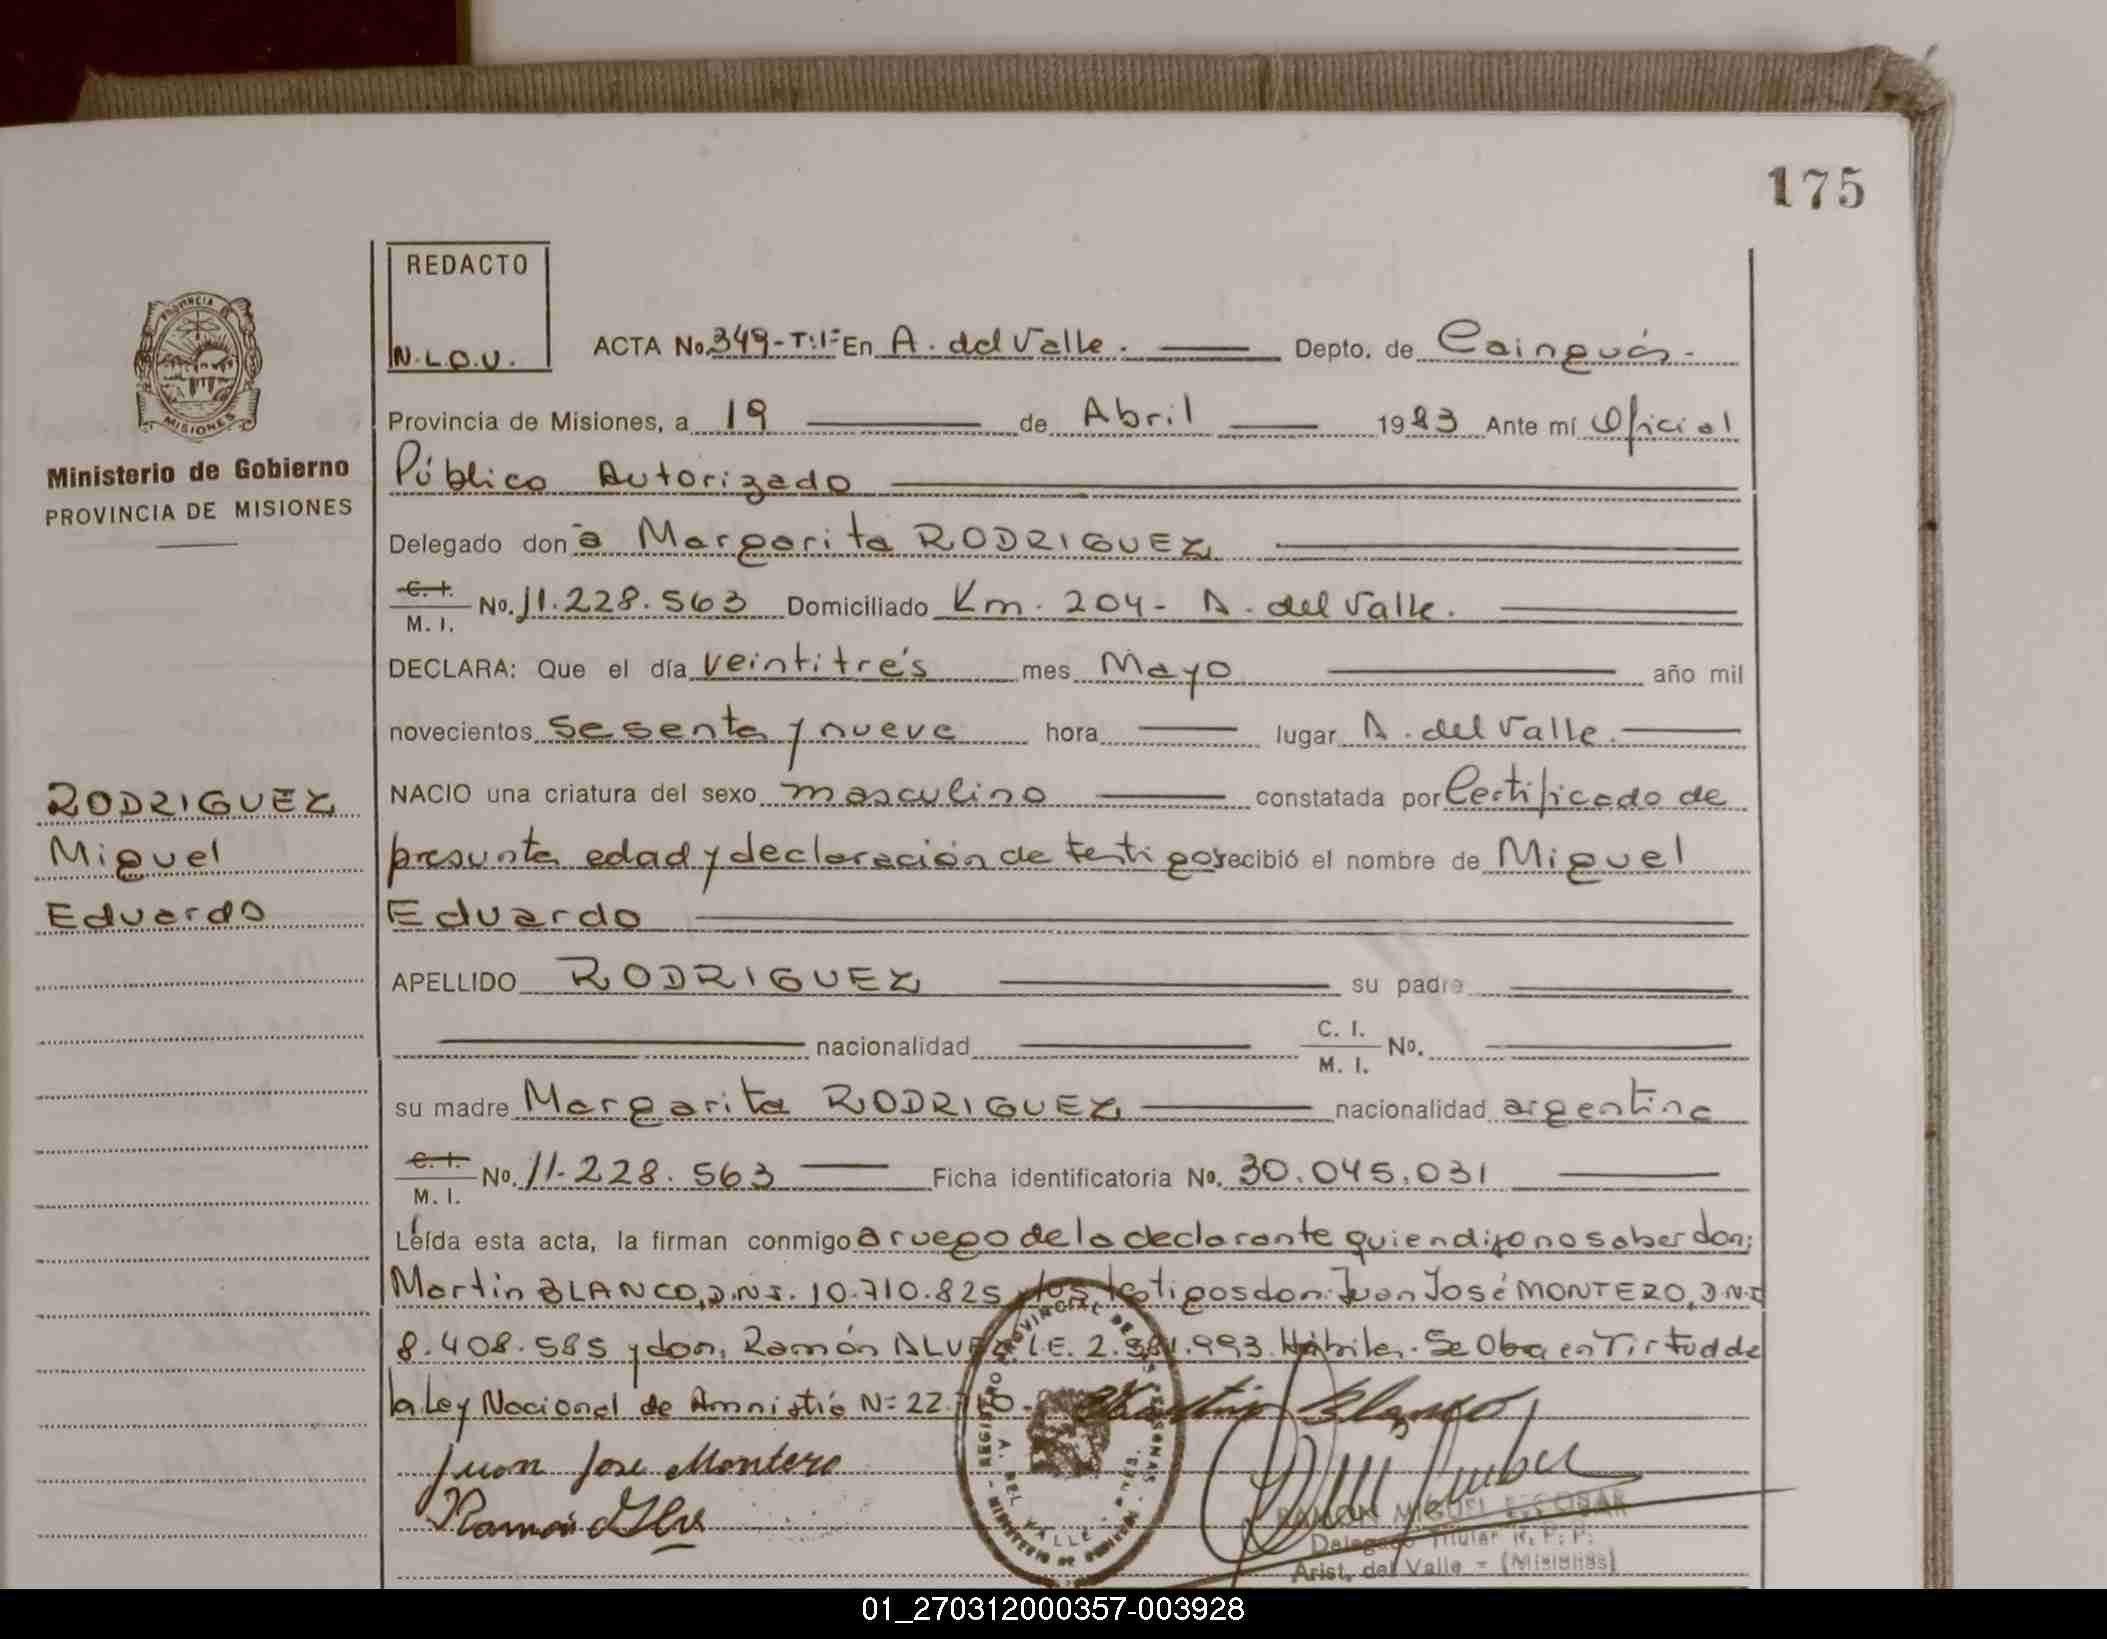 175
REDACTO
N.L.O.V.
PROVINCIA DE MISIONES
Ministerio de Gobierno
PROVINCIA DE MISIONES
ACTA No. 349-T:1º En A. del Valle. Depto. de Cainguás.-
Provincia de Misiones, a 19 de Abril 1983 Ante mí Oficial
Público Autorizado
Delegado don a Margarita RODRIGUEZ
C. I. M. I. No. 11.228.563 Domiciliado Km. 204- A. del Valle.
DECLARA: Que el día veintitrés mes Mayo año mil
novecientos sesenta y nueve hora lugar A. del Valle.
NACIO una criatura del sexo masculino constatada por Certificado de
presunta edad y declaración de testigos recibió el nombre de Miguel
Eduardo
RODRIGUEZ
Miguel
Eduardo
APELLIDO RODRIGUEZ su padre
nacionalidad C. I. M. I. No.
su madre Margarita RODRIGUEZ nacionalidad argentina
C. I. M. I. No. 11.228.563 Ficha identificatoria No. 30.045.031
Leída esta acta, la firman conmigo a ruego de la declarante quien dijo no saber don;
Martin BLANCO, D.N.I. 10.710.825 y los testigos don: Juan José MONTERO, D.N.I
8.408.585 y don, Ramón ALVEZ L.E. 2.581.993. Hábiles. Se Obra en Virtud de
la Ley Nacional de Amnistía Nº 22.
Martin Blanco
Juan Jose Montero
Ramon
REGISTRO PROVINCIAL DE LAS PERSONAS
A. DEL VALLE
MINISTERIO DE GOBIERNO
RAMON MIGUEL ESCOBAR
Delegado Titular R. P. P.
Arist. del Valle - (Misiones)
01_270312000357-003928